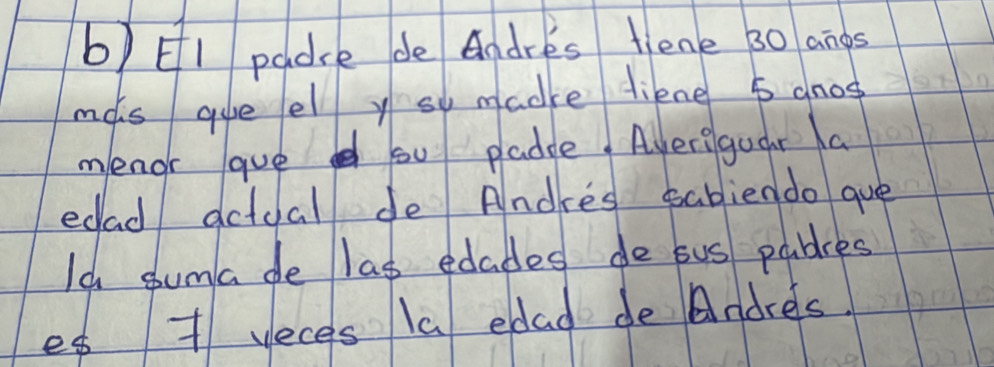 b) El padre de Andrés tiene 30 años
más que el y su madre tiene 5 años
menor que su padre. Averiguar la
edad actual de Andrés sabiendo que
la suma de las edades de sus pabres
es 7 veces la edad de Andrés.